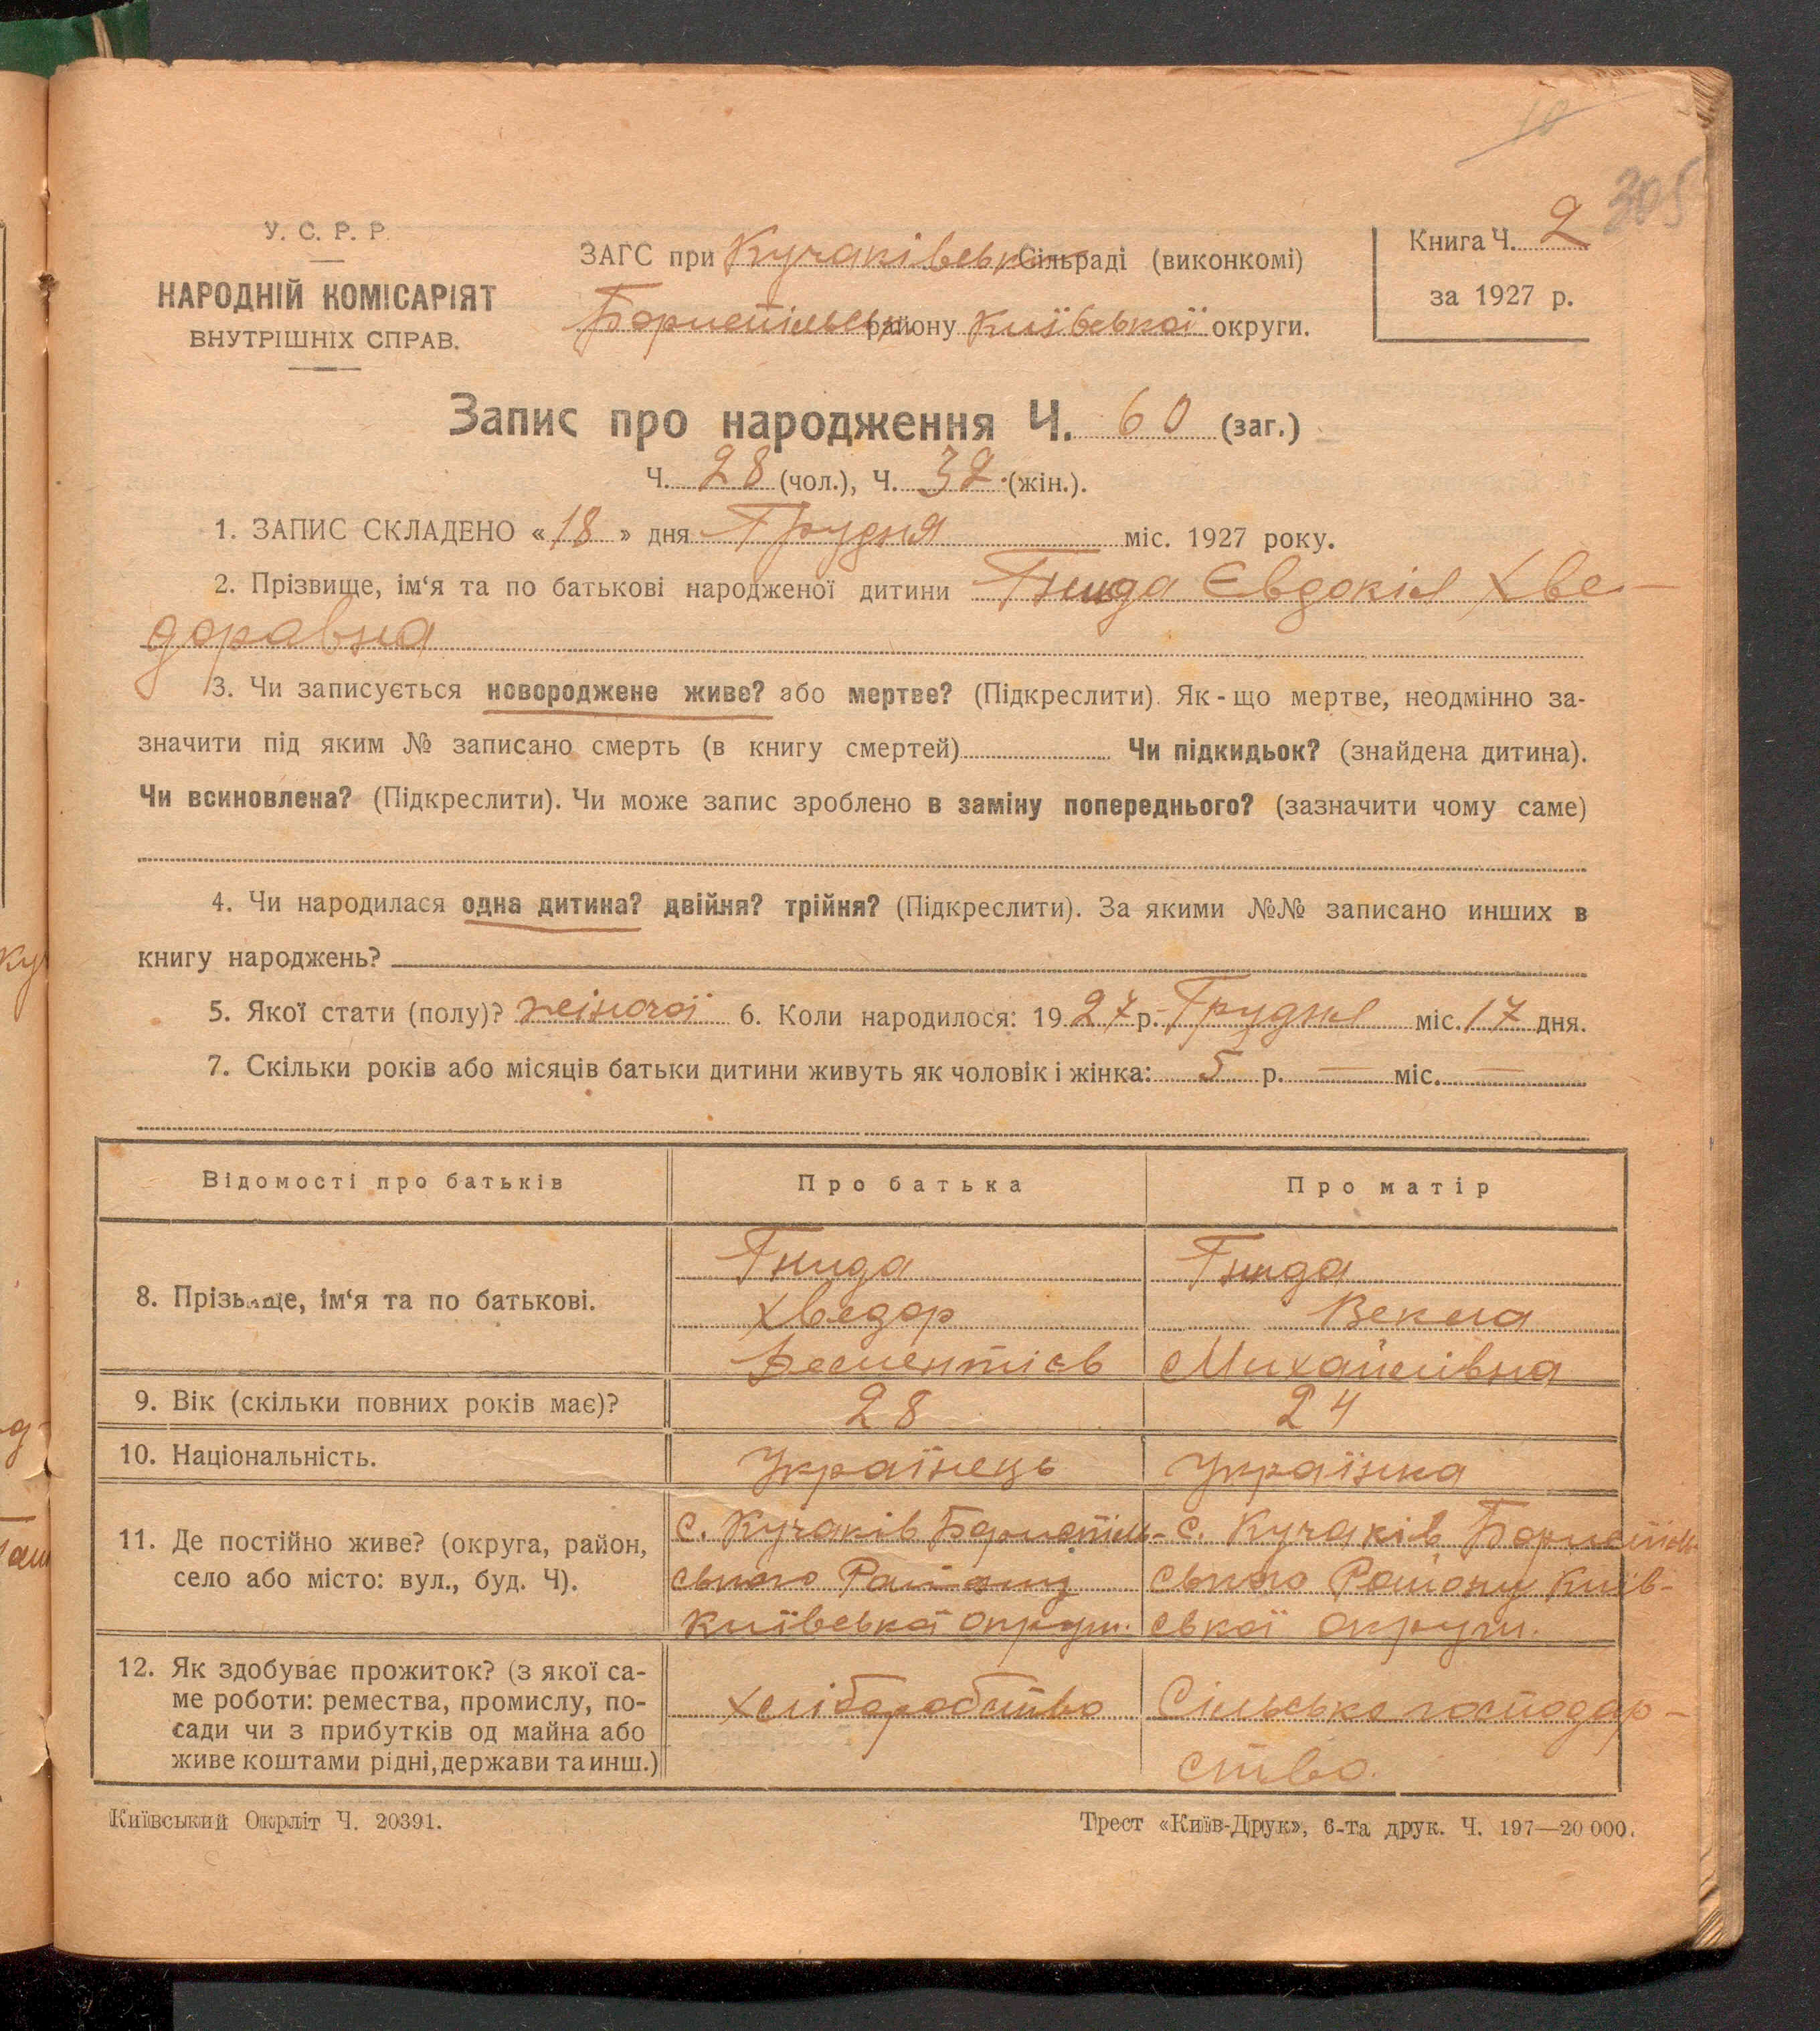 10
305
У. С. Р. Р.
НАРОДНІЙ КОМІСАРІЯТ
ВНУТРІШНІХ СПРАВ.
ЗАГС при Кучаківськ. Сільраді (виконкомі)
Бориспільськ району Київської округи.
Книга Ч. 2
за 1927 р.
Запис про народження Ч. 60 (заг.)
Ч. 28 (чол.), Ч. 32 (жін.).
1. ЗАПИС СКЛАДЕНО «18» дня Грудня міс. 1927 року.
2. Прізвище, ім‘я та по батькові народженої дитини Гнида Євдокія Хве-
доравна
3. Чи записується новороджене живе? або мертве? (Підкреслити). Як - що мертве, неодмінно за-
значити під яким № записано смерть (в книгу смертей) Чи підкидьок? (знайдена дитина).
Чи всиновлена? (Підкреслити). Чи може запис зроблено в заміну попереднього? (зазначити чому саме)
4. Чи народилася одна дитина? двійня? трійня? (Підкреслити). За якими №№ записано инших в
книгу народжень?
5. Якої стати (полу)? жіночої 6. Коли народилося: 19 27 р. Грудня міс. 17 дня.
7. Скільки років або місяців батьки дитини живуть як чоловік і жінка: 5 р. — міс. —
Відомості про батьків Про батька Про матір
8. Прізвище, ім‘я та по батькові.
Гнида Гнида
Хведор Векла
Михайлівна
9. Вік (скільки повних років має)? 28 24
10. Національність. Українець Українка
11. Де постійно живе? (округа, район,
село або місто: вул., буд. Ч).
с. Кучаків Бориспіль-
ського Району
Київської округи.
с. Кучаків Бориспіль-
ського Району Київ-
ської округи.
12. Як здобуває прожиток? (з якої са-
ме роботи: ремества, промислу, по-
сади чи з прибутків од майна або
живе коштами рідні, держави та инш.)
хліборобство
Сільське господар-
ство.
Київський Окрліт Ч. 20391.
Трест «Київ-Друк», 6-та друк. Ч. 197—20 000.